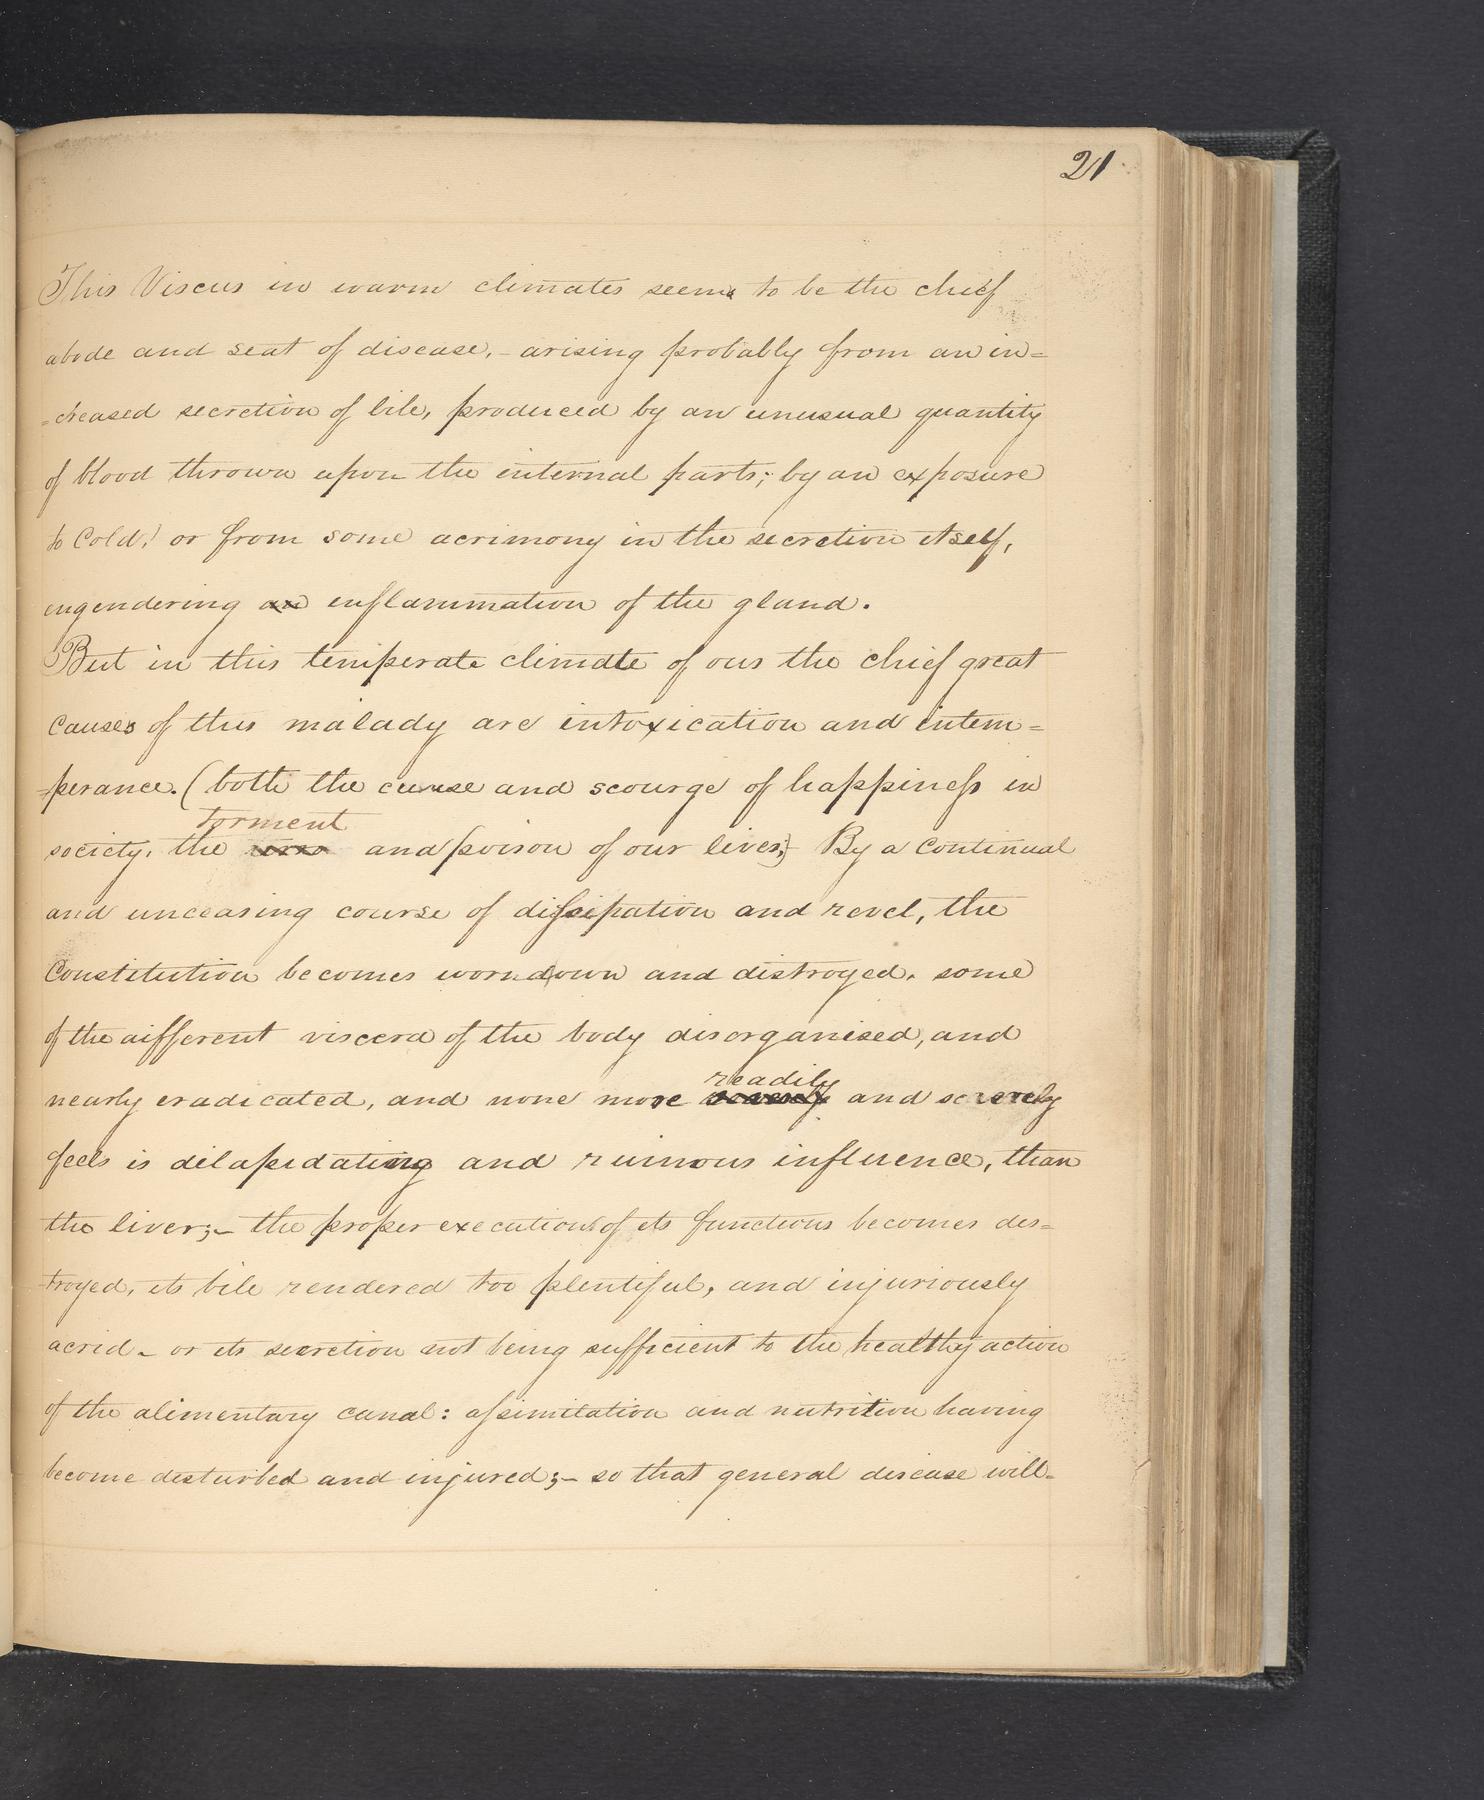 21
This Viscus in warm climates seems to be the chief
abode and seat of disease, - arising probably from an in=
=creased secretion of bile, produced by an unusual quantity
of blood thrown upon the internal parts; by an exposure
to Cold, or from some acrimony in the secretion itself,
engendering an inflammation of the gland.
But in this temperate climate of ous the chief great
Causes of this malady are intoxication and intem=
=perance. (both the curse and scourge of happiness in
torment
society, the and poison of our lives;) By a Continual
and unceasing course of dissipation and revel, the
Constitution becomes worn down and distroyed, some
of the different viscera of the body disorganised, and
readily
nearly eradicated, and none more severely and severely
feels is dilapidating and ruinous influence, than
the liver;- the proper execution of its functions becomes des=
troyed, its bile rendered too plentiful, and injuriously
acrid - or its secretion not being sufficient to the healthy action
of the alimentary canal: assimilation and nutrition having
become disturbed and injured;- so that general disease will-